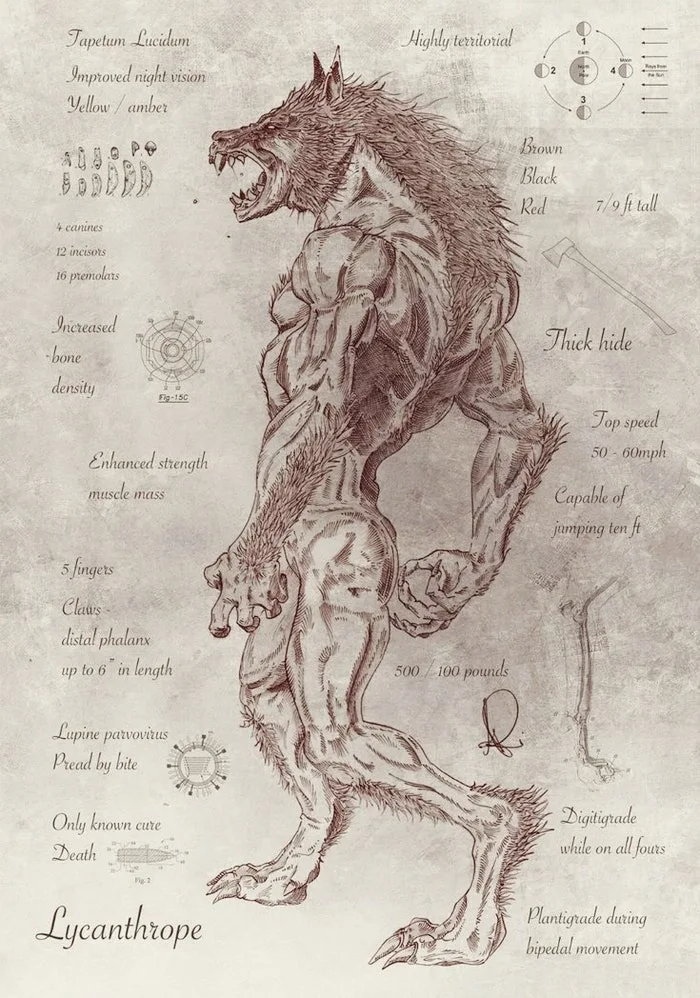 Tapetum Lucidum
Improved night vision
Yellow / amber
Highly territorial
1
Earth
2
North
Pole
4
Moon
Rays from
the Sun
3
Brown
Black
Red
7/9 ft tall
4 canines
12 incisors
16 premolars
Thick hide
Increased
bone
density
Fig-15C
Top speed
50 - 60mph
Enhanced strength
muscle mass
Capable of
jumping ten ft
5 fingers
Claws -
distal phalanx
up to 6" in length
500 / 100 pounds
Lupine parvovirus
Pread by bite
Only known cure
Death
Fig. 2
Digitigrade
while on all fours
Lycanthrope
Plantigrade during
bipedal movement